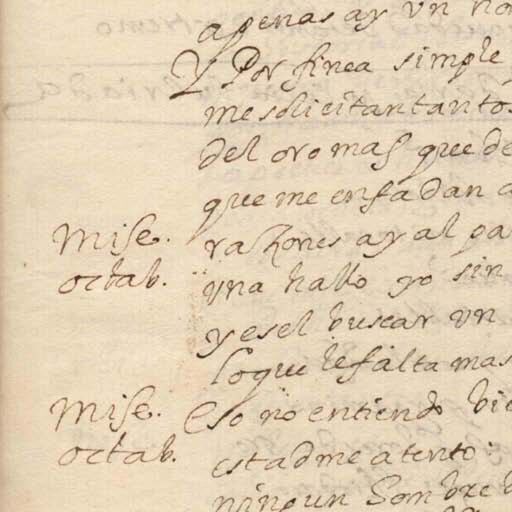 apenas ay un
Y Por finea simple
me solicitan tantos
del oro mas que de
que me enfadan a
Mise. razones ay al pa
octab. una hallo yo sin
y es el buscar un
lo que le falta mas
Mise. Eso no entiendo bie
octab. estadme atento
ningun Sombre